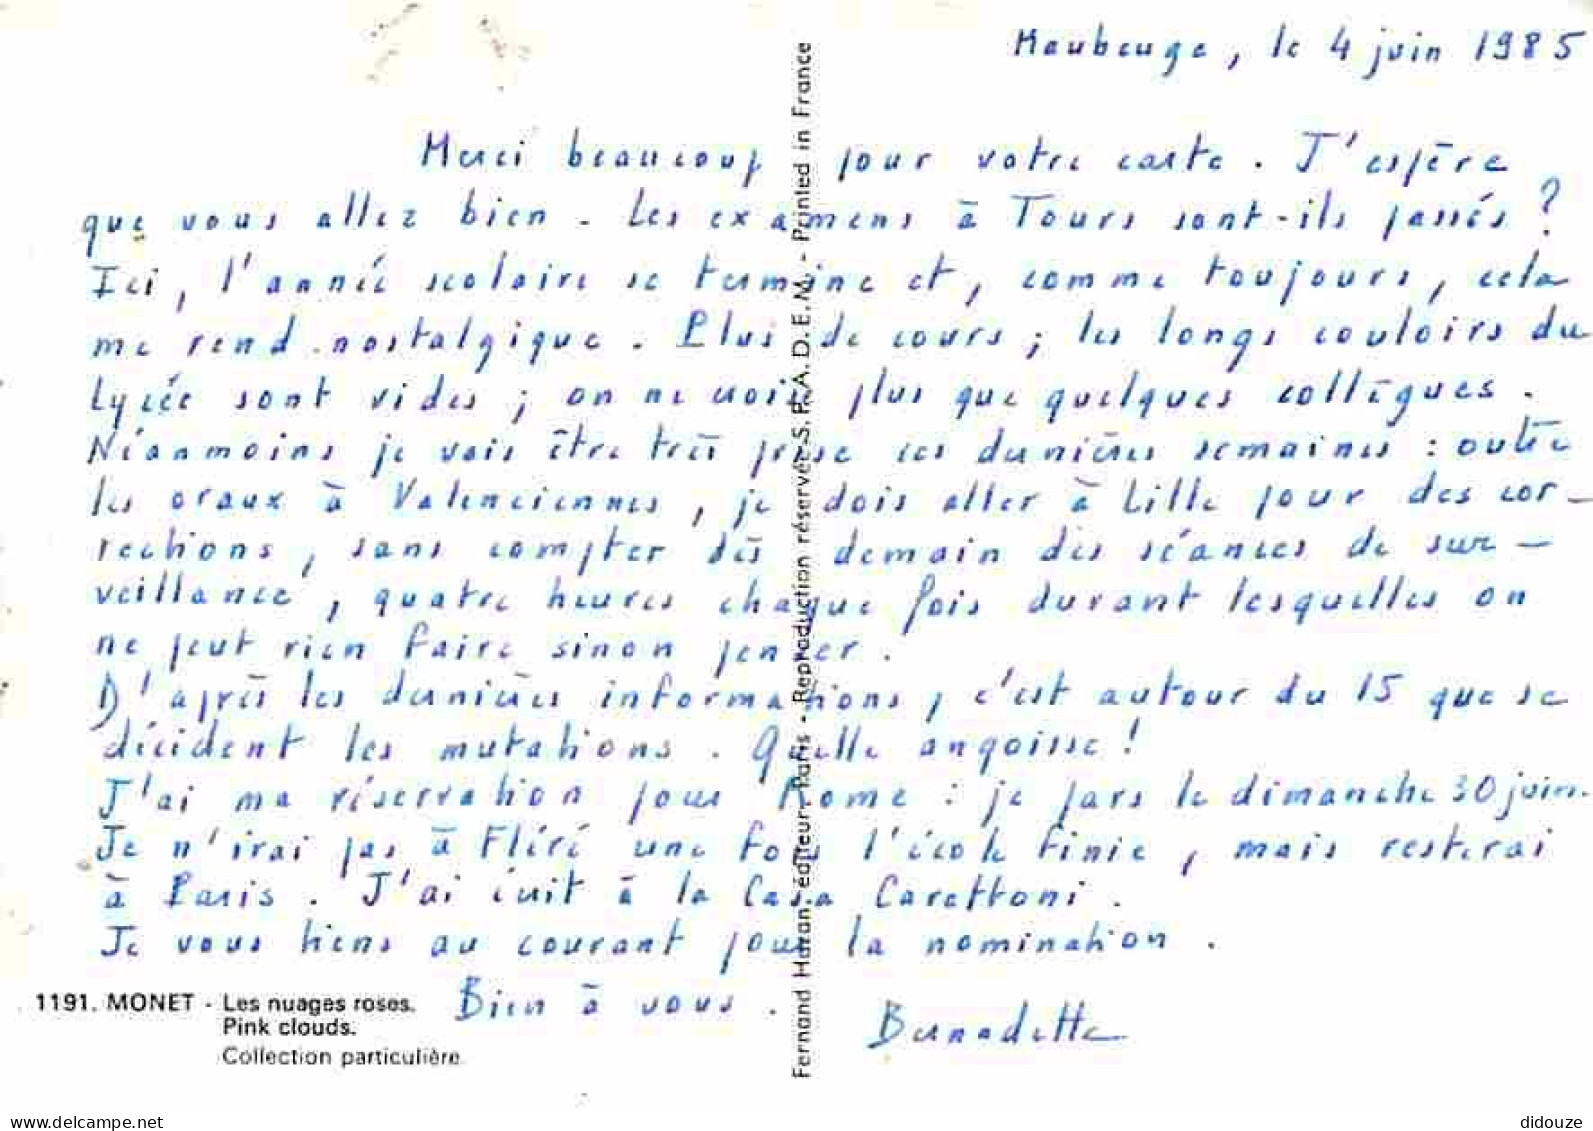 Maubeuge, le 4 juin 1985
Merci beaucoup pour votre carte. J'espère
que vous allez bien. Les examens à Tours sont-ils passés ?
Ici, l'année scolaire se termine et, comme toujours, cela
me rend nostalgique. Plus de cours ; les longs couloirs du
lycée sont vides ; on ne voit plus que quelques collègues.
Néanmoins je vais être très prise ces dernières semaines : outre
les oraux à Valenciennes, je dois aller à Lille pour des cor-
rections, sans compter dès demain des séances de sur-
veillance, quatre heures chaque fois durant lesquelles on
ne peut rien faire sinon penser.
D'après les dernières informations, c'est autour du 15 que se
décident les mutations. Quelle angoisse !
J'ai ma réservation pour Rome : je pars le dimanche 30 juin.
Je n'irai pas à Fliré une fois l'école finie, mais resterai
à Paris. J'ai écrit à la Casa Carettoni.
Je vous tiens au courant pour la nomination.
Bien à vous.
Bernadette
1191. MONET - Les nuages roses.
Pink clouds.
Collection particulière
Fernand Hazan éditeur, Paris - Reproduction réservée S.P.A.D.E.M. - Printed in France
www.delcampe.net
didouze